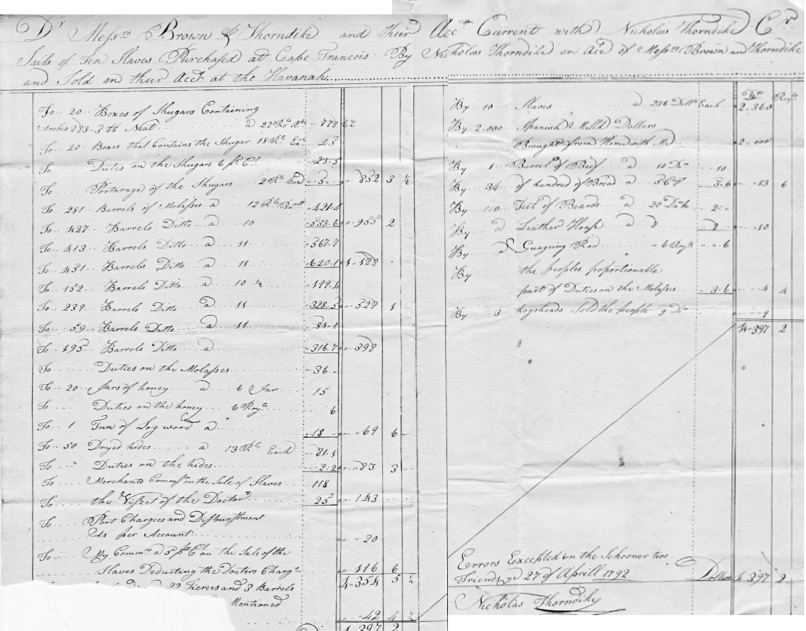 Dr Messrs Brown & Thorndike and their Acct Current with Nicholas Thorndike Cr
Sails of Ten Slaves Purchased at Cape Francois By Nicholas Thorndike on Acct of Messrs Brown and Thorndike
and Sold on their Acct at the Havanah
To 20 Boxes of Shugars Containing
Neat
To 20 Boxes that Contains the Shugar
To Duties on the Shugars
To Portarage of the Shugars 852 3 ½
To 281 Barrels of Molasses a
To 427 Barrels Ditto a 10 955 2
To 413 Barrels Ditto a 11 567.7
To 451 Barrels Ditto a 11
To 152 Barrels Ditto a 10 ½ 199.4
To 239 Barrels Ditto a 11 328.5 528 1
To 59 Barrels Ditto a 11
To 195 Barrels Ditto a 316.7 398
To Duties on the Molasses 36
To 20 Jars of honey a 6 Jar 15
To Duties on the honey 6
To 1 Tun of Log wood a 18 69 6
To 50 Dryed hides a 13 Each 81.1
To Duties on the hides 2.2 83 3
To Merchants Commsn on the Sale of Slaves 118
To the Visset of the Doctor 25 143
To Port Charges and Disburstment
As per Account 20
To My Commn a 5 pr Ct on the Sale of the
Slaves Deducting the Doctors Charge 116 6
4354 5 ½
22 Tierces and 3 Barrels
Mentioned 42 4 ½
4397 2
By 10 Slaves a 236 Dolls Each 2360
By 2.000 Spanish Milld Dollars
Brought from 2000
By 1 Barrel of Beef a 10 10
By 34 of hundred of Bread a 3.6 13 6
By 100 Feet of Boards a 20
By a Leather Hoase a 8 8
By a Guaging Rod 6 6
By the peoples proportionable
part of Duties on the Molasses 3.6 4 4
By 3 hogsheads Sold the people 9
4397 2
Errors Excepted on the Schooner two
Friends ye 27 of Aprill 1792 Dollars 4397 2
Nicholas Thorndike